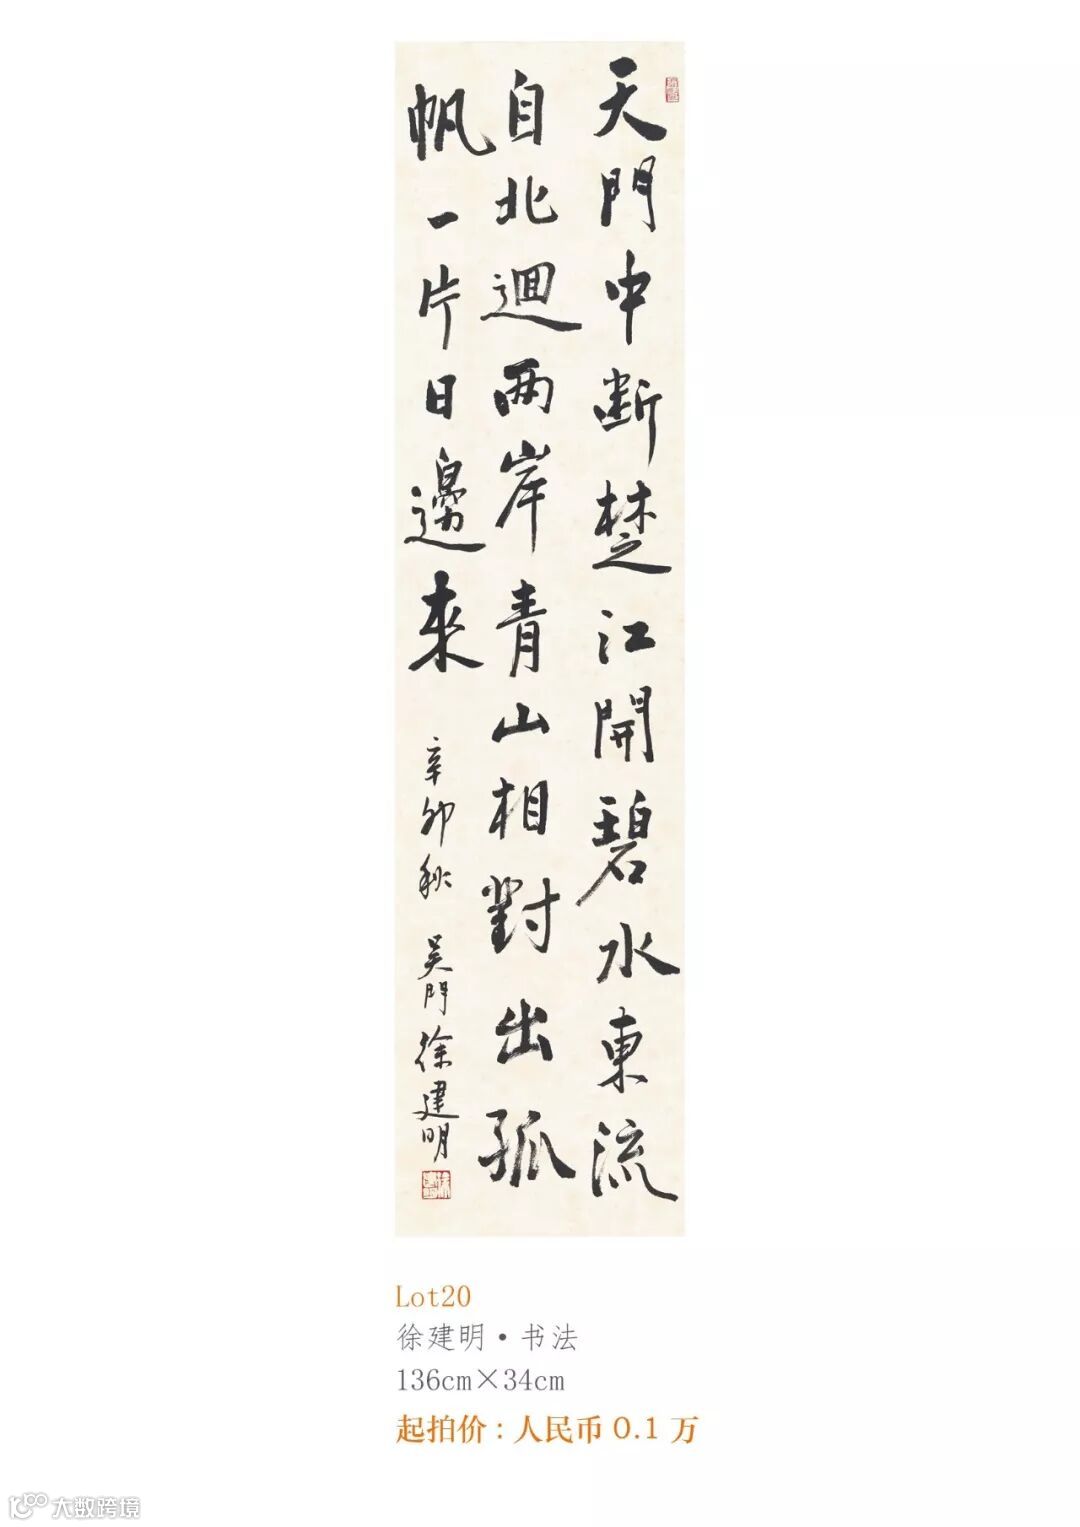 天門中断楚江開碧水東流
自北迴两岸青山相對出孤
帆一片日邊來
辛卯秋 吴門徐建明
Lot20
徐建明·书法
136cm×34cm
起拍价：人民币 0.1 万
大数跨境